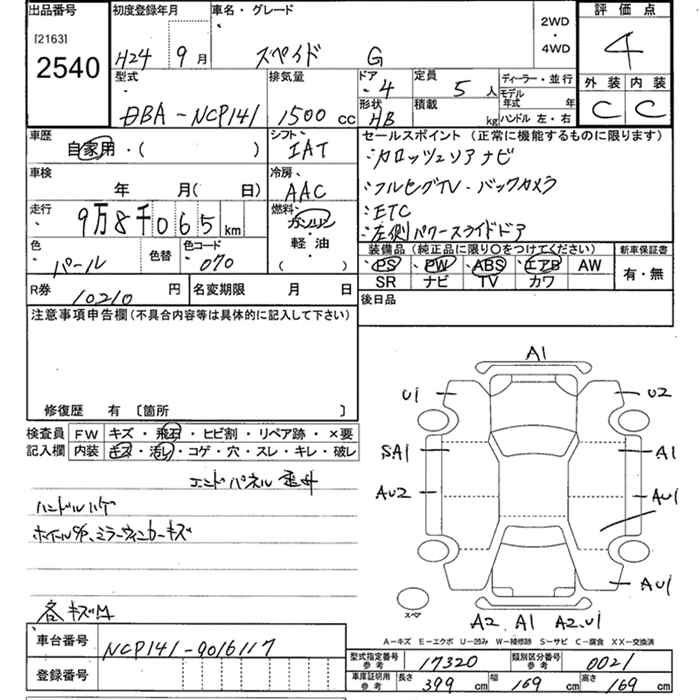 出品番号 初度登録年月 車名・グレード 2WD・4WD 評価点
[2163] 2540 H24 9月 スペイド G 4
型式 排気量 ドア 4 定員 5人 ディーラー・並行 外装 内装
DBA-NCP141 1500cc 形状 HB 積載 kg モデル年式 年 ハンドル 左・右 C C
車歴 自家用・( ) シフト IAT セールスポイント(正常に機能するものに限ります)
車検 年 月( 日) 冷房 AAC ・カロッツェリア ナビ
・フルセグTV・バックカメラ
走行 9万8千065km 燃料 ガソリン・軽油( ) ・ETC
・左側パワースライドドア
色 パール 色替 色コード 070
装備品(純正品に限り○をつけてください) 新車保証書
PS PW ABS エアB AW 有・無
SR ナビ TV カワ
R券 10210円 名変期限 月 日 後日品
注意事項申告欄(不具合内容等は具体的に記入して下さい)
修復歴 有 [箇所 ]
検査員記入欄 FW キズ・飛石・ヒビ割・リペア跡・×要
内装 キズ・汚レ・コゲ・穴・スレ・キレ・破レ
エンドパネル
ハンドルハゲ
ホイールキズ、ミラーウィンカーキズ
各キズ
A1
U1 U2
SA1 A1
AU2 AU1
AU1
スペア
A2 A1 A2.U1
A-キズ E-エクボ U-凹み W-補修跡 S-サビ C-腐食 XX-交換済
車台番号 NCP141-9016117
登録番号
型式指定番号 参考 17320 類別区分番号 参考 0021
車庫証明用 参考 長さ 399cm 幅 169cm 高さ 169cm